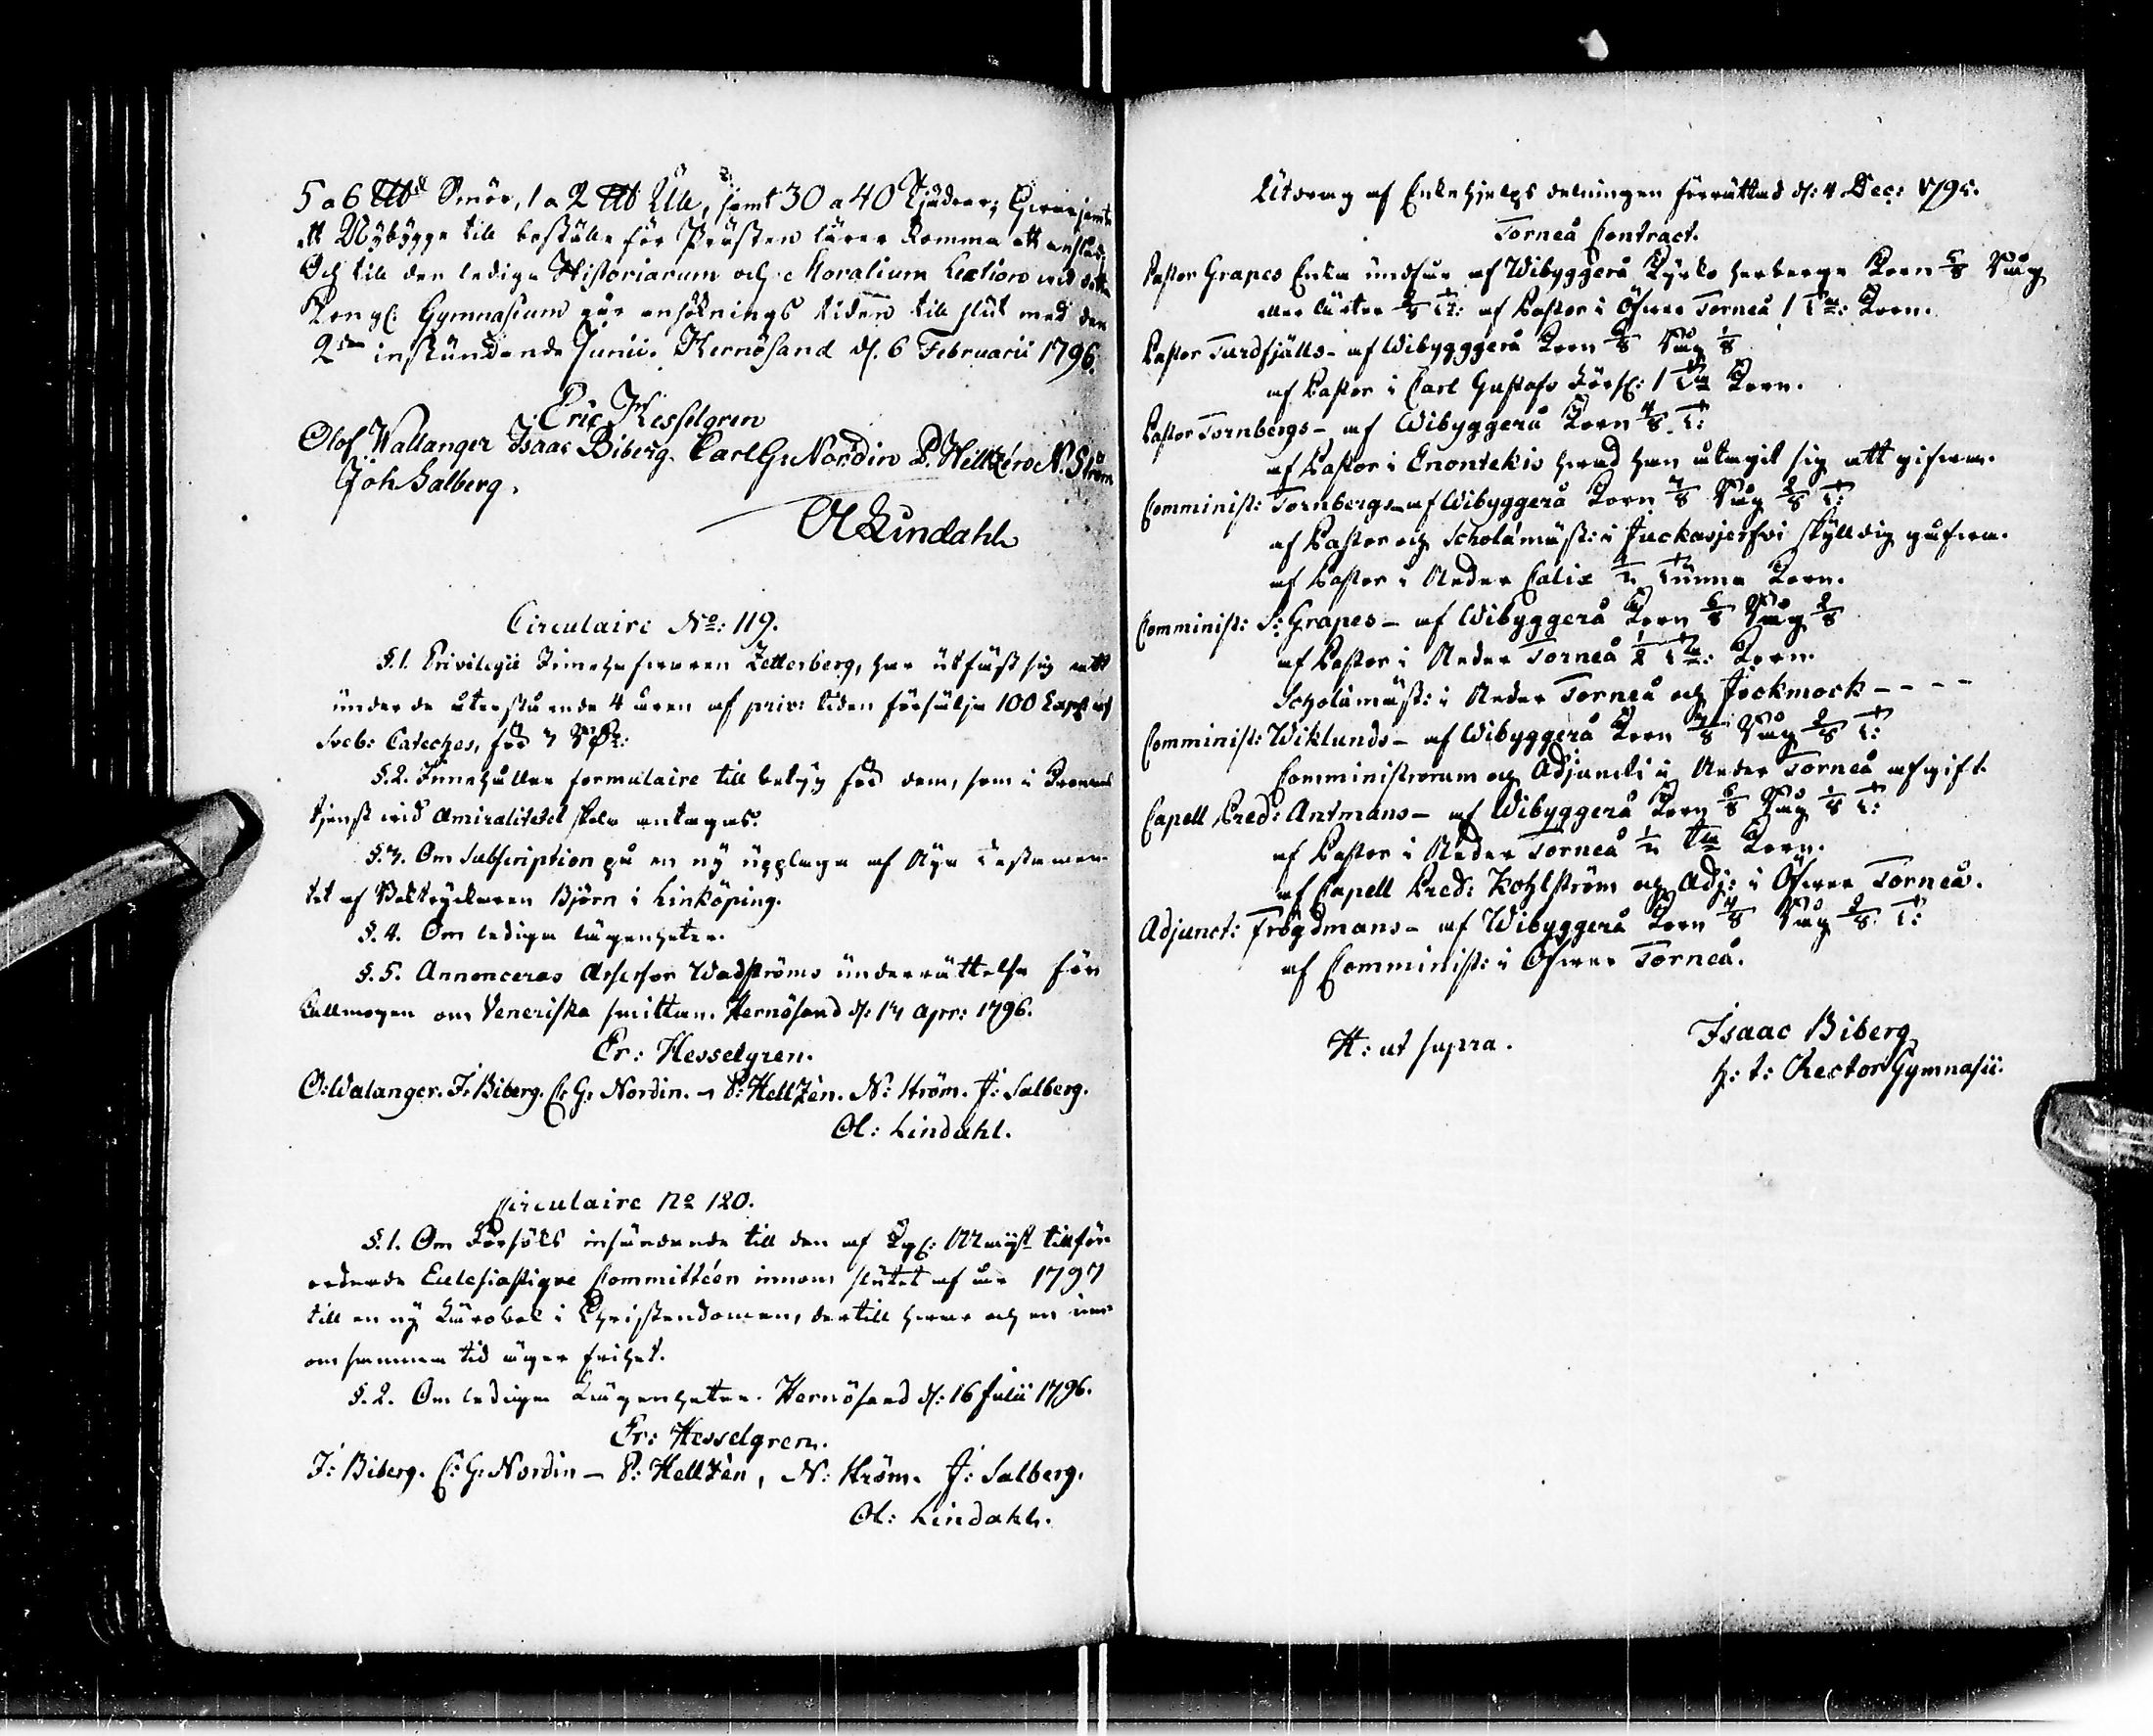 5 a 6 ℔ Smör, 1 a 2 ℔ Ull, samt 30 a 40 Fjädrar; hvarjemte
ett Nybygge till boställe för Prästen lärer komma att anslås.
Och till den lediga Historiarum och Moralium Lection vid detta
Kongl: Gymnasium går ansöknings tiden till slut med den
2dra instundande Junii. Hernösand d. 6 Februarii 1796.
Eric Hesselgren
Olof Wallanger Isaac Biberg. Carl G: Nordin P. Hellzén N. Ström
Joh Salberg.
Ol Lindahl
Circulaire No: 119.
§. 1. Privilegii Innehafvaren Zetterberg, har utfäst sig att
under de återstående 4 åren af priv: tiden försälja 100 Expl: af
Sveb: Cateches, för 7 Rdr:
§. 2. Innehåller formulaire till betyg för dem, som i Kronans
tjenst vid Amiralitetet skola antagas.
§. 3. Om Subscription på en ny upplaga af Nya Testamen-
tet af Boktryckaren Björn i Linköping.
§. 4. Om lediga lägenheter.
§. 5. Annonceras Assessor Wadströms underrättelse för
Allmogen om Veneriska smittan. Hernösand d: 14 Apr: 1796.
Er: Hesselgren.
O: Walanger. I: Biberg. C: G: Nordin. P: Hellzén. N: Ström. J: Salberg.
Ol: Lindahl.
Circulaire No 120.
§. 1. Om Försöks insändande till den af Kgl: Majst tillför-
ordnade Ecclesiastique Committéen innom slutet af år 1797
till en ny Lärobok i Christendomen, dertill hvar och en inn-
om samma tid äger frihet.
§. 2. Om lediga Lägenheter. Hernösand d: 16 Julii 1796.
Er: Hesselgren.
I: Biberg. C: G: Nordin – P: Hellzén, N: Ström. J: Salberg.
Ol: Lindahl.
Utdrag af Enkehjelps delningen förrättad d: 4 Dec: 1795.
Torneå Contract.
Pastor Grapes Enka undfår af Wibyggerå Kyrko herberge Korn 5/8 Råg
eller ärter 2/8 T: af Pastor i Öfver Torneå 1 Tna: Korn.
Pastor Turdfjälls – af Wibyggerå Korn 6/8 Råg 1/8
af Pastor i Carl Gustafs Förs: 1 Tna Korn.
Pastor Tornbergs – af Wibyggerå Korn 4/8 T:
af Pastor i Enontekis hvad han åtagit sig att gifva.
Comminist: Tornbergs – af Wibyggerå Korn 7/8 Råg 2/8 T:
af Pastor och Scholämäst: i Juckasjerfvi skylldig gåfva.
af Pastor i Neder Calix 1/2 Tunna Korn.
Comminist: S: Grapes – af Wibyggerå Korn 6/8 Råg 2/8
af Pastor i Neder Torneå 1/2 Tna: Korn.
Scholämäst: i Neder Torneå och Jockmock – – – –
Comminist: Wiklunds – af Wibyggerå Korn 7/8 Råg 2/8 T:
Comministrorum och Adjuncti i Neder Torneå afgift.
Capell Pred: Antmans – af Wibyggerå Korn 6/8 Råg 1/8 T:
af Pastor i Neder Torneå 1/2 Tna Korn.
af Capell Pred: Kohlström och Adj: i Öfver Torneå.
Adjunct: Frögdmans – af Wibyggerå Korn 4/8 Råg 2/8 T:
af Comminist: i Öfver Torneå.
H: ut supra.
Isaac Biberg
h: t: Rector Gymnasii.